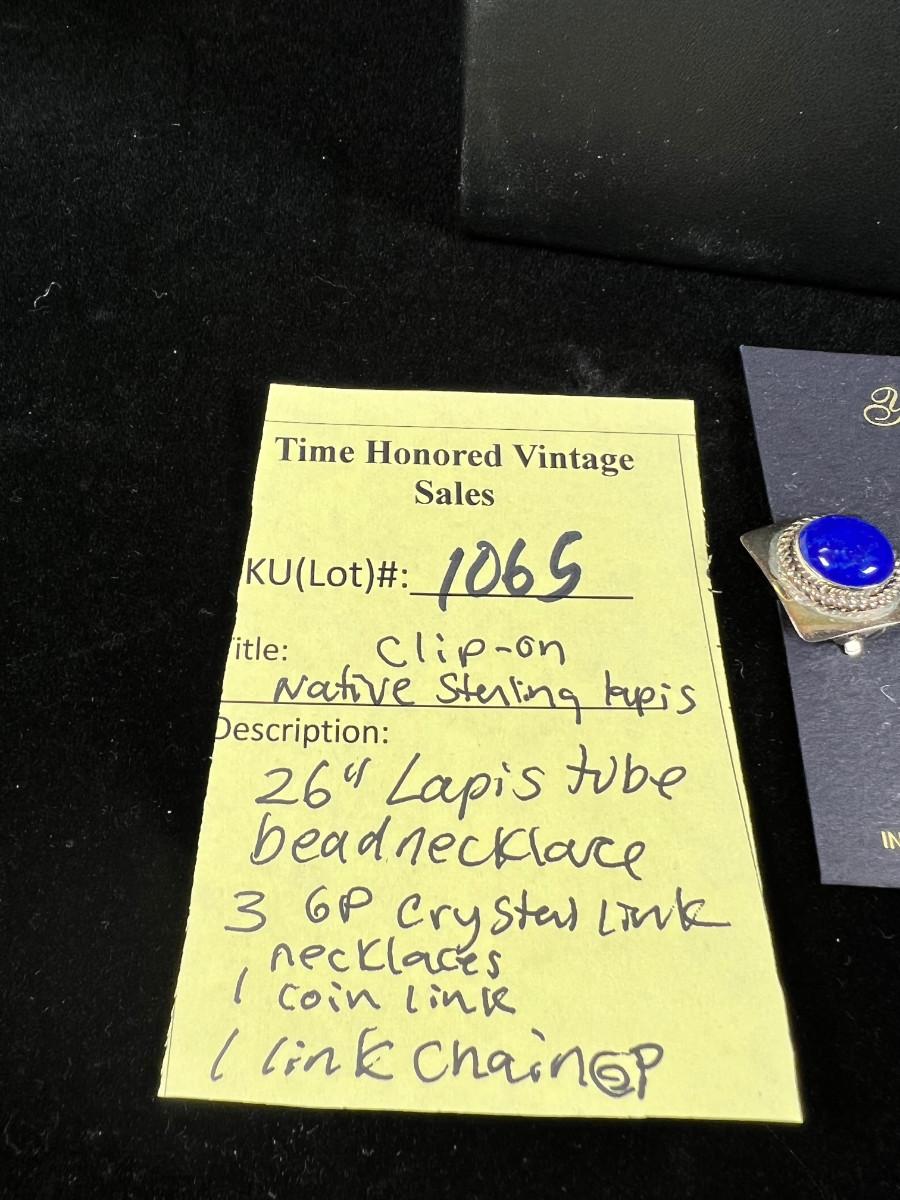 Time Honored Vintage
Sales
KU(Lot)#: 1065
itle: Clip-on
Native Sterling lapis
Description:
26" Lapis tube
bead necklace
3 GP Crystal Link
necklaces
1 coin link
1 link chain GP
IN